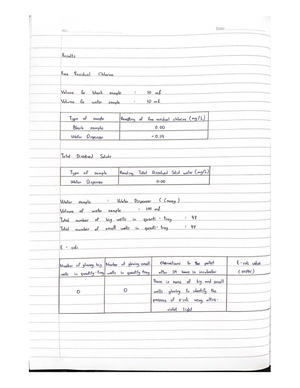 Results
Free Residual Chlorine
Volume for blank sample : 10 ml
Volume for water sample : 10 ml
Type of sample | Reading of free residual chlorine (mg/L)
Blank sample | 0.00
Water Dispenser | -0.14
Total Dissolved Solids
Type of sample | Reading Total Dissolved Solid water (mg/L)
Water Dispenser | 0.00
Water sample : Water Dispenser
Volume of water sample : 100 ml
Total number of big wells in quanti - tray : 48
Total number of small wells in quanti - tray : 48
E - coli
Number of glowing big wells in quantity-tray | Number of glowing small wells in quantity tray | Observations to the pallet after 24 hours in incubator | E-coli value
0 | 0 | There is none of big and small
wells glowing to identify the
presence of e-coli using ultra-
violet light